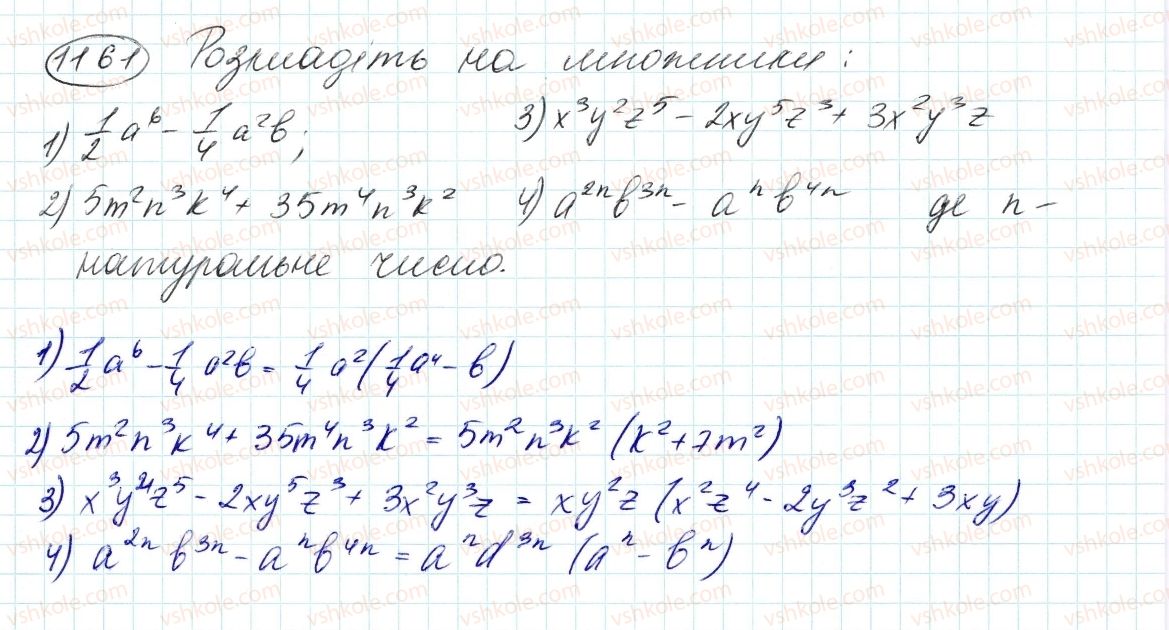 1161 Розкладіть на множники:
1) 1/2 a⁶ - 1/4 a²b; 3) x³y²z⁵ - 2xy⁵z³ + 3x²y³z
2) 5m²n³k⁴ + 35m⁴n³k² 4) a²ⁿb³ⁿ - aⁿb⁴ⁿ де n -
натуральне число.
1) 1/2 a⁶ - 1/4 a²b = 1/4 a² (1/4 a⁴ - b)
2) 5m²n³k⁴ + 35m⁴n³k² = 5m²n³k² (k² + 7m²)
3) x³y²z⁵ - 2xy⁵z³ + 3x²y³z = xy²z (x²z⁴ - 2y³z² + 3xy)
4) a²ⁿb³ⁿ - aⁿb⁴ⁿ = aⁿd³ⁿ (aⁿ - bⁿ)
vshkole.com